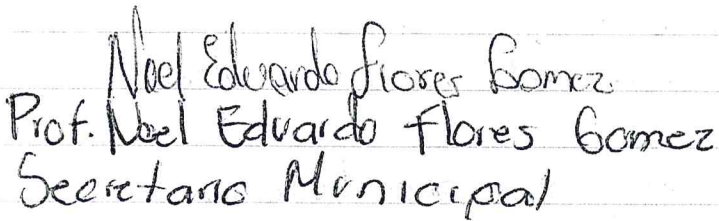 Noel Eduardo Flores Gomez
Prof. Noel Eduardo Flores Gomez
Secretario Municipal